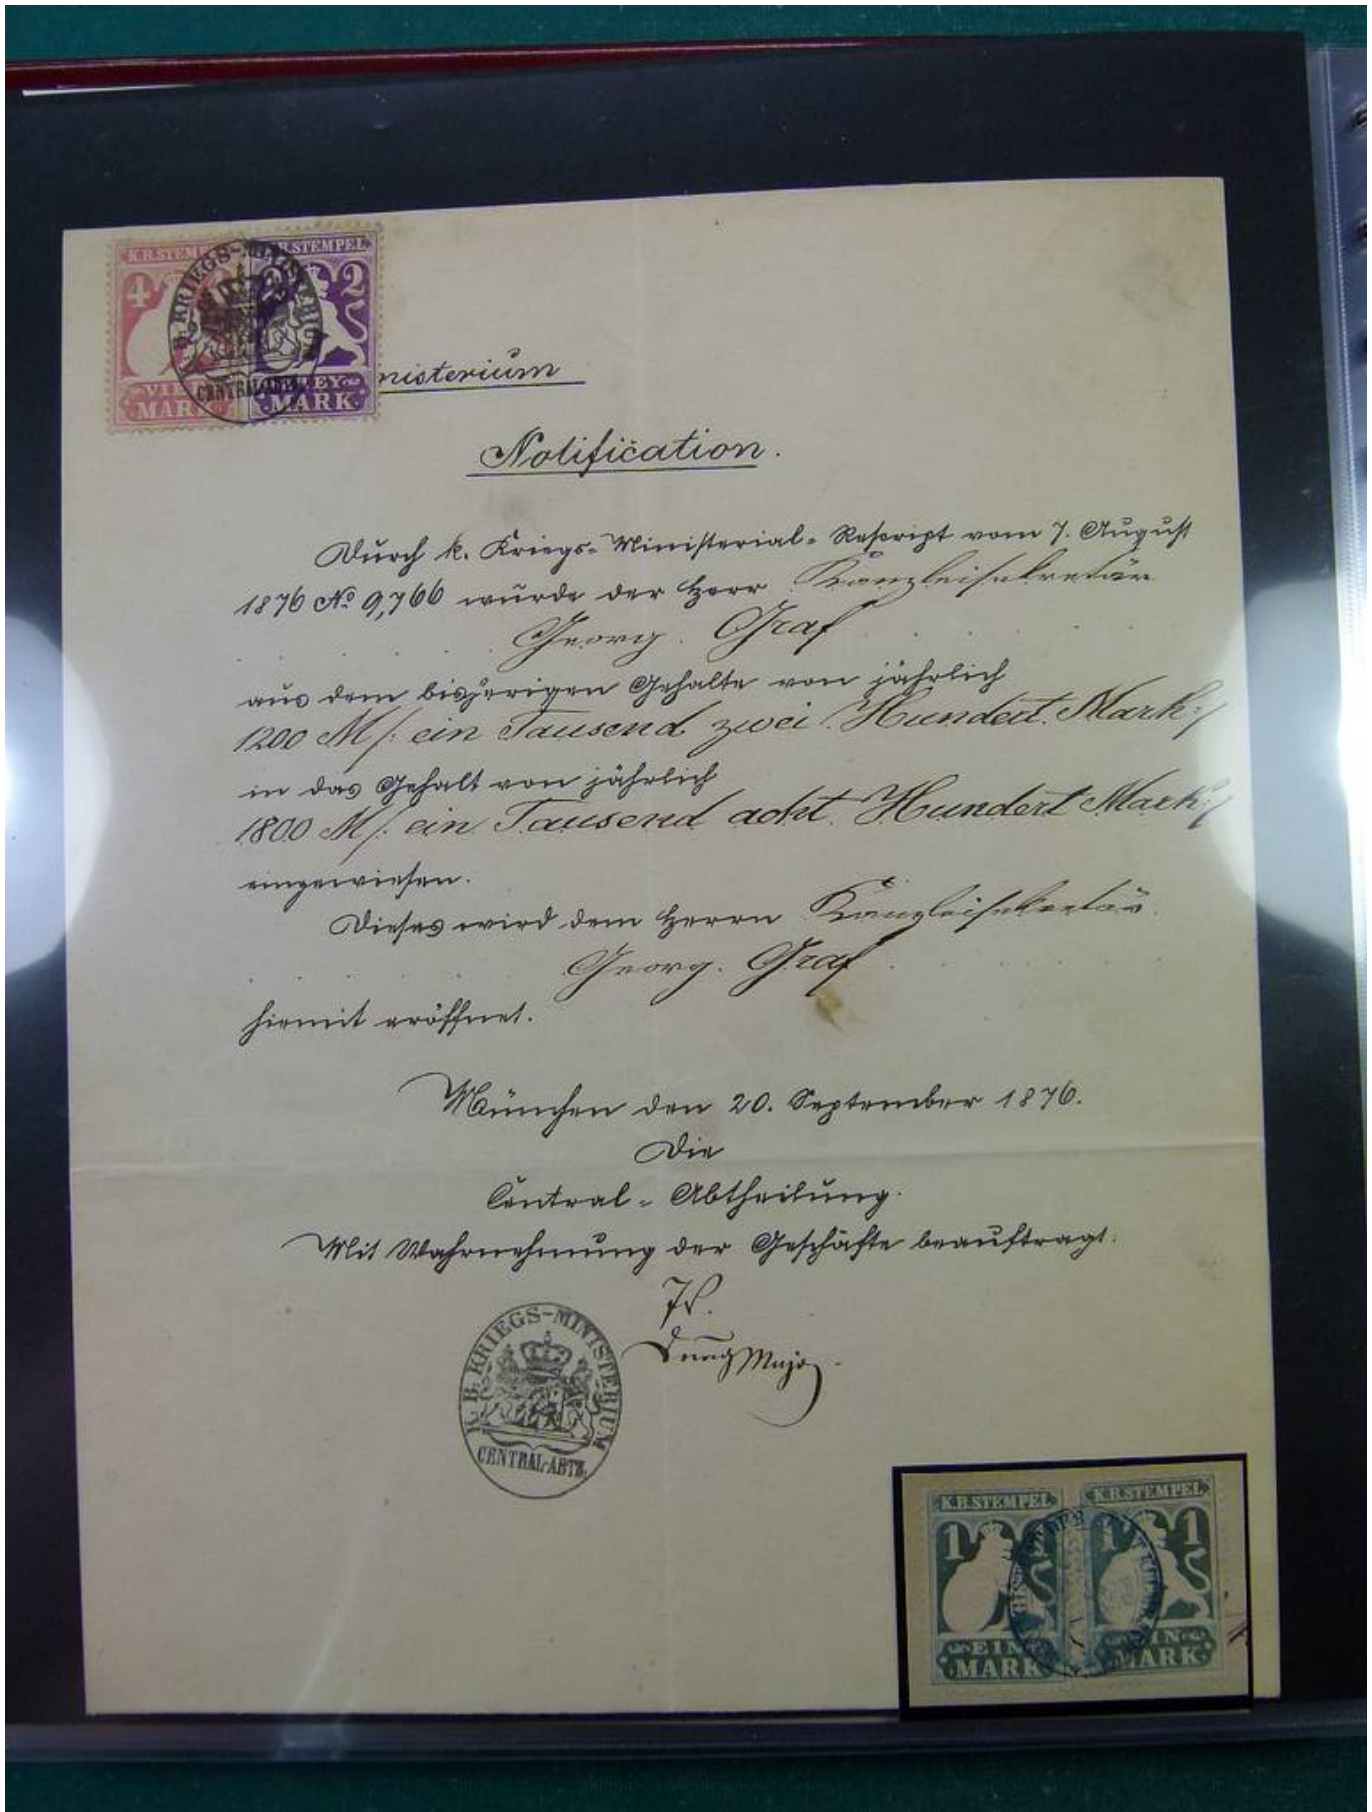 K.B.STEMPEL
4 2 2
K.B. KRIEGS-MINISTERIUM
CENTRAL-ABTH.
MARK ZWEY MARK
nisterium
Notification.
Durch k. Kriegs-Ministerial-Rescript vom 7. August
1876 No 9,766 wurde der Herr Kanzleisekretär
Georg Graf
aus dem bisherigen Gehalte von jährlich
1200 M/: ein Tausend zwei Hundert Mark :/
in das Gehalt von jährlich
1800 M/: ein Tausend acht Hundert Mark :/
eingewiesen.
Dieses wird dem Herrn Kanzleisekretär
Georg Graf
hiemit eröffnet.
München den 20. September 1876.
Die
Central-Abtheilung.
Mit Wahrnehmung der Geschäfte beauftragt:
Major
K. B. KRIEGS-MINISTERIUM
CENTRAL-ABTH.
K.B.STEMPEL K.B.STEMPEL
1 1 1
EIN MARK EIN MARK